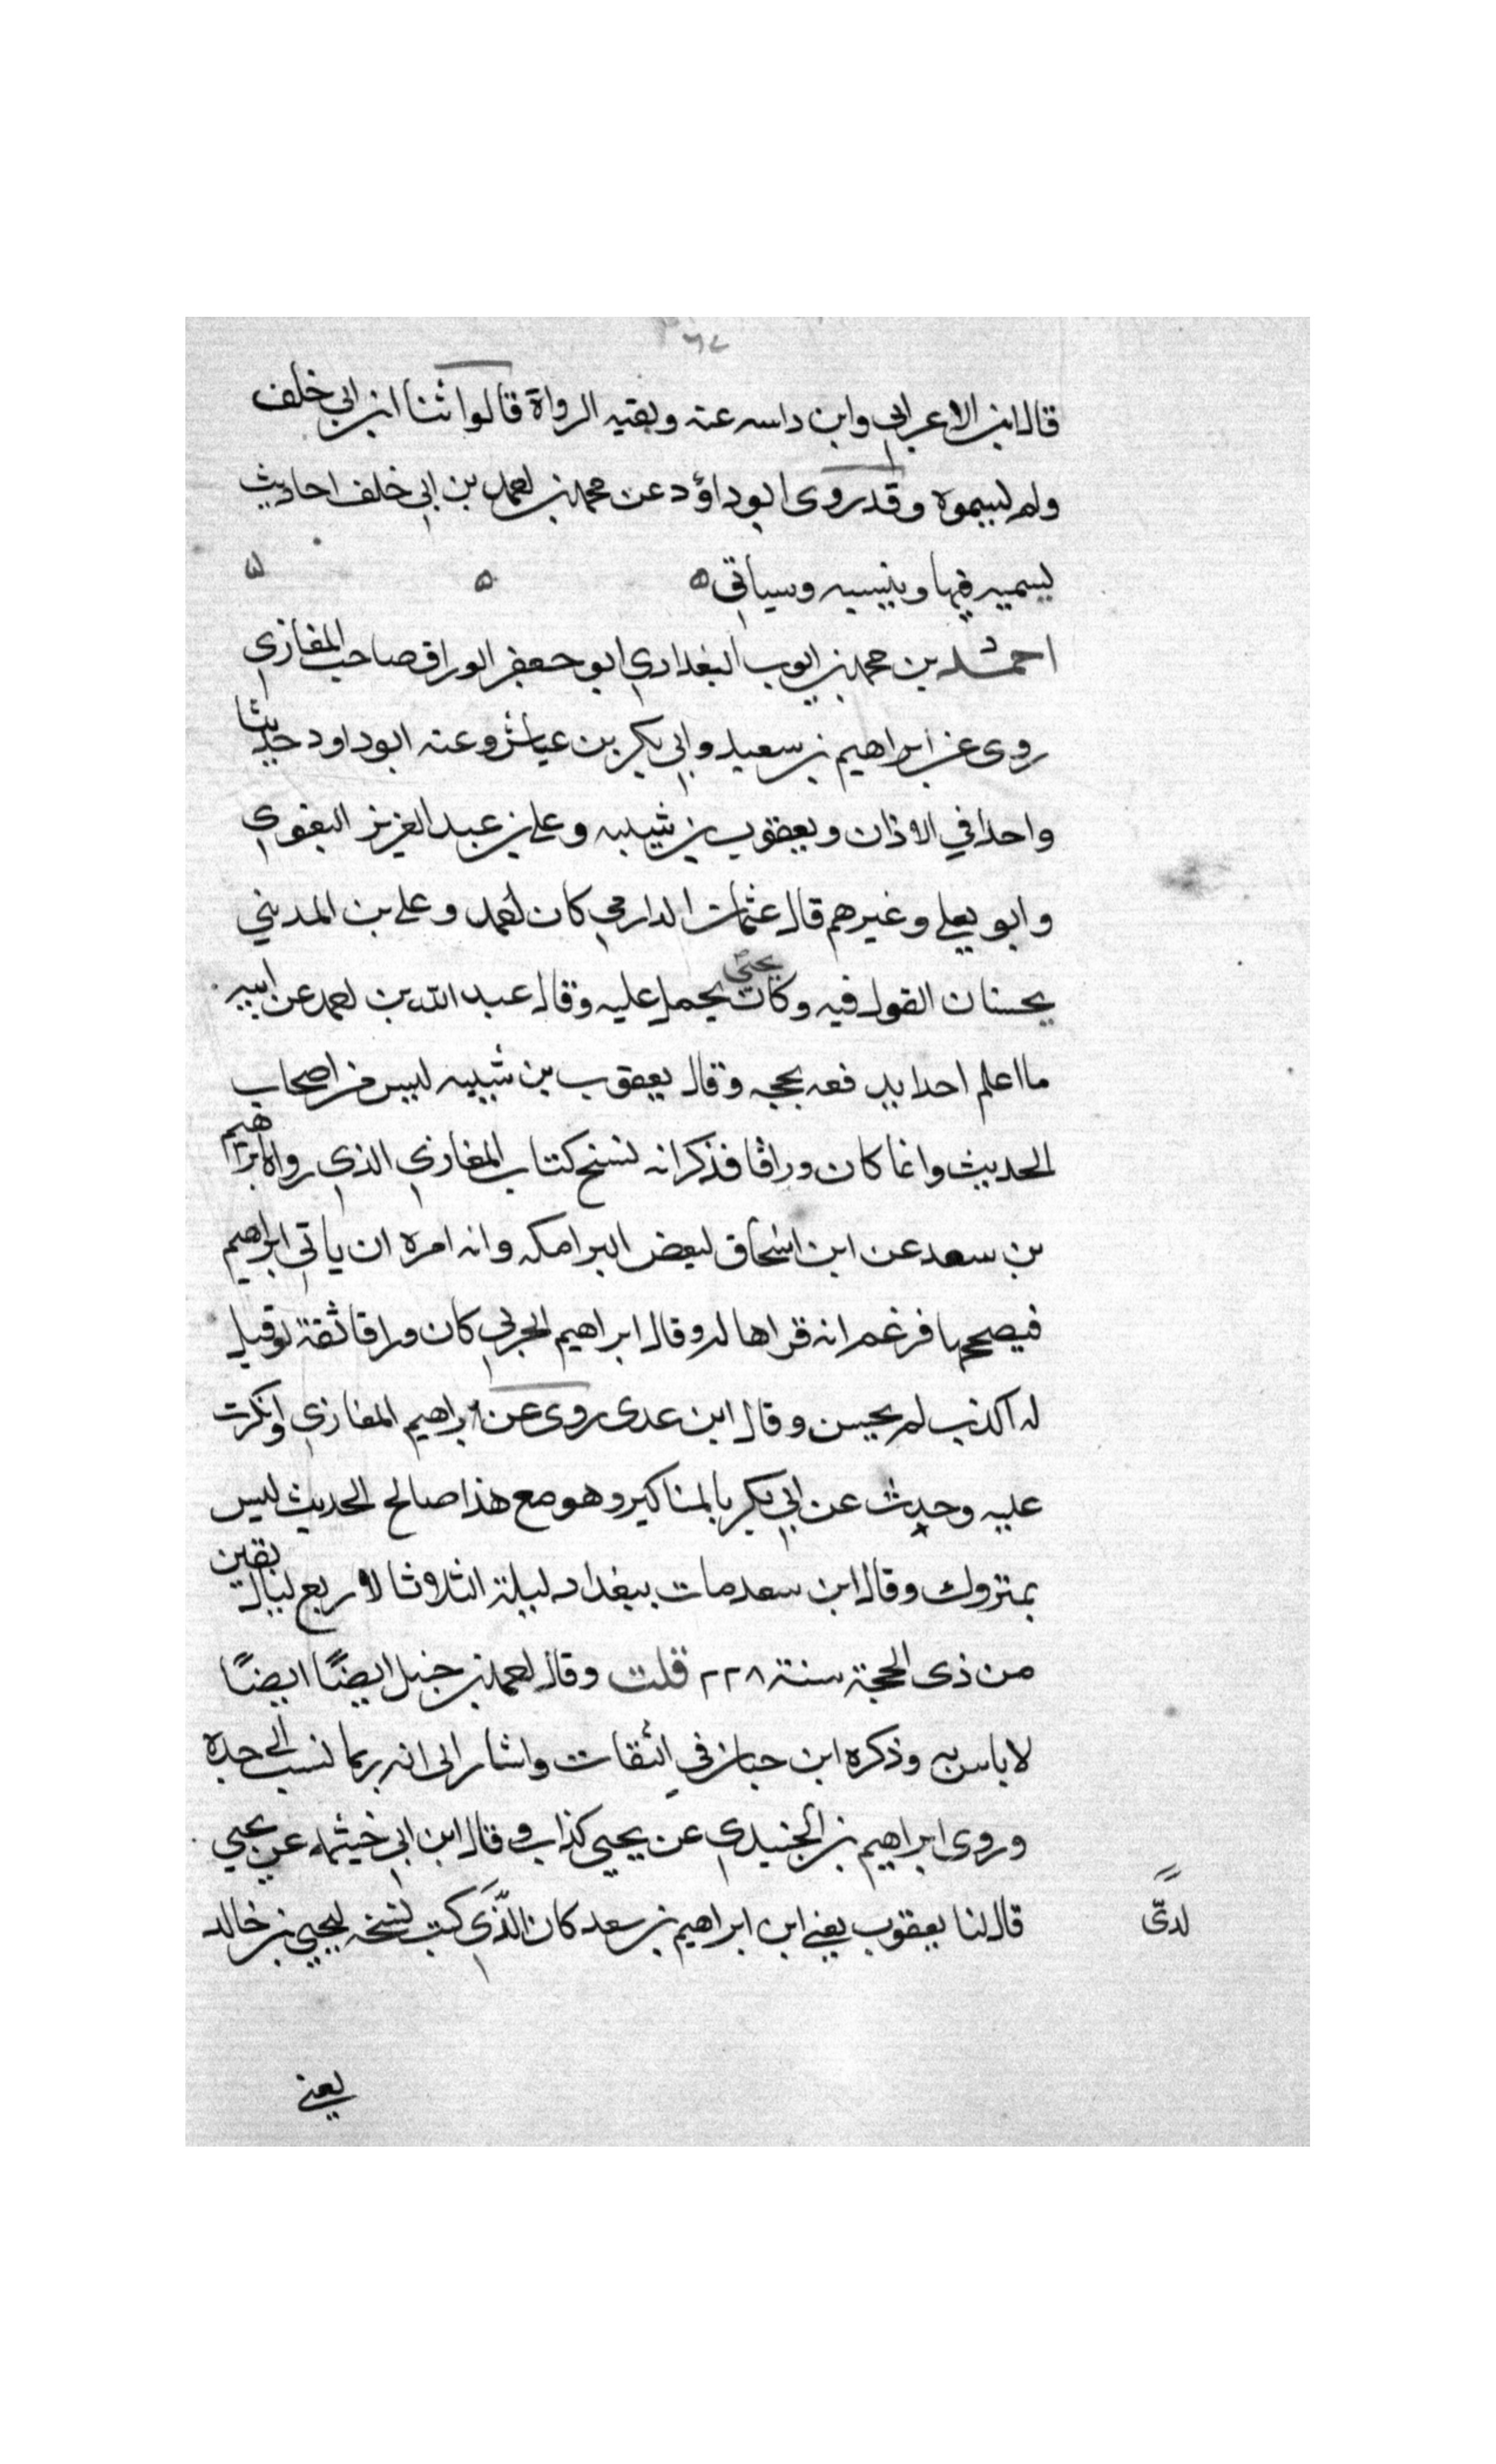 ٦٧
قال ابن الاعرابي وابن داسه عنه وبقيه الرواة قالوا ثنا ابن ابي خلف
ولم يسموه وقد روى ابو داؤد عن محمد بن احمد بن ابي خلف احاديث
يسميه فيها وينسبه وسياتي ه ه ه
احمد بن محمد بن ايوب البغدادي ابو جعفر الوراق صاحب المغازي
روى عن ابراهيم بن سعيد وابي بكر بن عياش وعنه ابو داود حديثا
واحدا في الاذان ويعقوب بن شيبه وعلي بن عبد العزيز البغوي
وابو يعلى وغيرهم قال عثمان الدارمي كان احمد وعلي بن المديني
يحسنان القول فيه وكان يحيى يحمل عليه وقال عبد الله بن احمد عن ابيه
ما اعلم احدا يدفعه بحجه وقال يعقوب بن شيبه ليس من اصحاب
الحديث وانما كان وراقا فذكر انه نسخ كتاب المغازي الذي رواه ابراهيم
بن سعد عن ابن اسحاق لبعض البرامكه وانه امره ان ياتي ابراهيم
فيصححها فزعم انه قراها له وقال ابراهيم الحربي كان وراقا ثقة لو قيل
له اكذب لم يحسن وقال ابن عدى روى عن ابراهيم المغازي وانكرت
عليه وحدث عن ابي بكر بالمناكير وهو مع هذا صالح الحديث ليس
بمتروك وقال ابن سعد مات ببغداد ليلة الثلاثا لاربع ليال بقين
من ذى الحجة سنة ٢٢٨ قلت وقال احمد بن حنبل ايضًا ايضًا
لا باس به وذكره ابن حبان في الثقات واشار الى انه ربما نسب الى جده
وروى ابراهيم بن الجنيدي عن يحيى كذاب وقال ابن ابي خيثمه عن يحيى
قال لنا يعقوب يعني ابن ابراهيم بن سعد كان الذي كتب نسخه ليحيى بن خالد
لدىّ
يعني